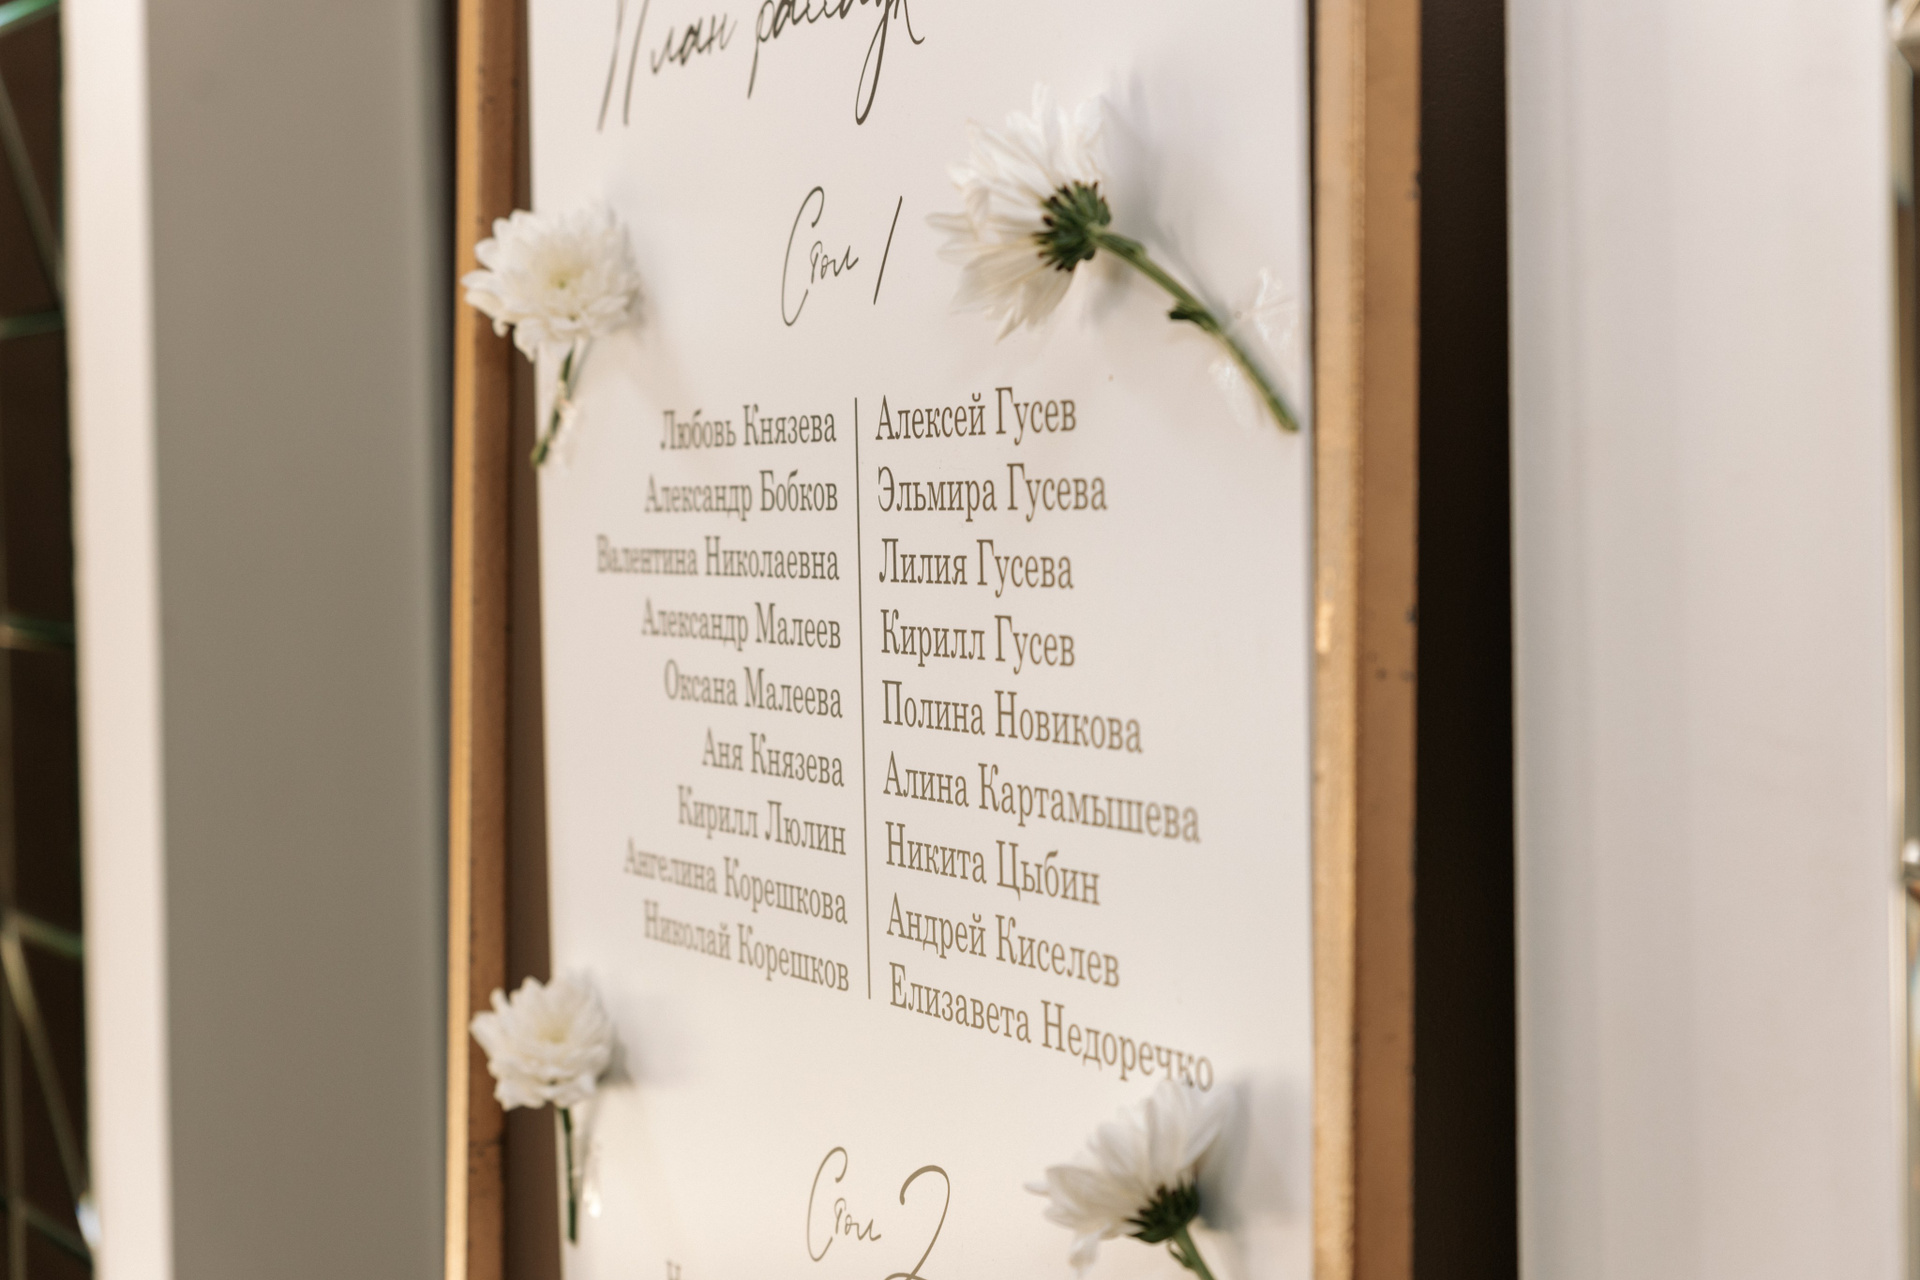 План рассадк
Стол 1
Любовь Князева
Александр Бобков
Валентина Николаевна
Александр Малеев
Оксана Малеева
Аня Князева
Кирилл Люлин
Ангелина Корешкова
Николай Корешков
Алексей Гусев
Эльмира Гусева
Лилия Гусева
Кирилл Гусев
Полина Новикова
Алина Картамышева
Никита Цыбин
Андрей Киселев
Елизавета Недоречко
Стол 2